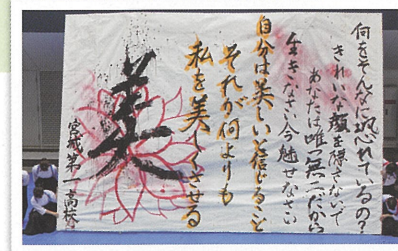 何をそんなに恐れているの?
きれいな顔を隠さないで
あなたは唯一無二だから
生きなさい今魅せなさい
自分は美しいと信じること
それが何よりも
私を美しくさせる
美
宮城第一高校